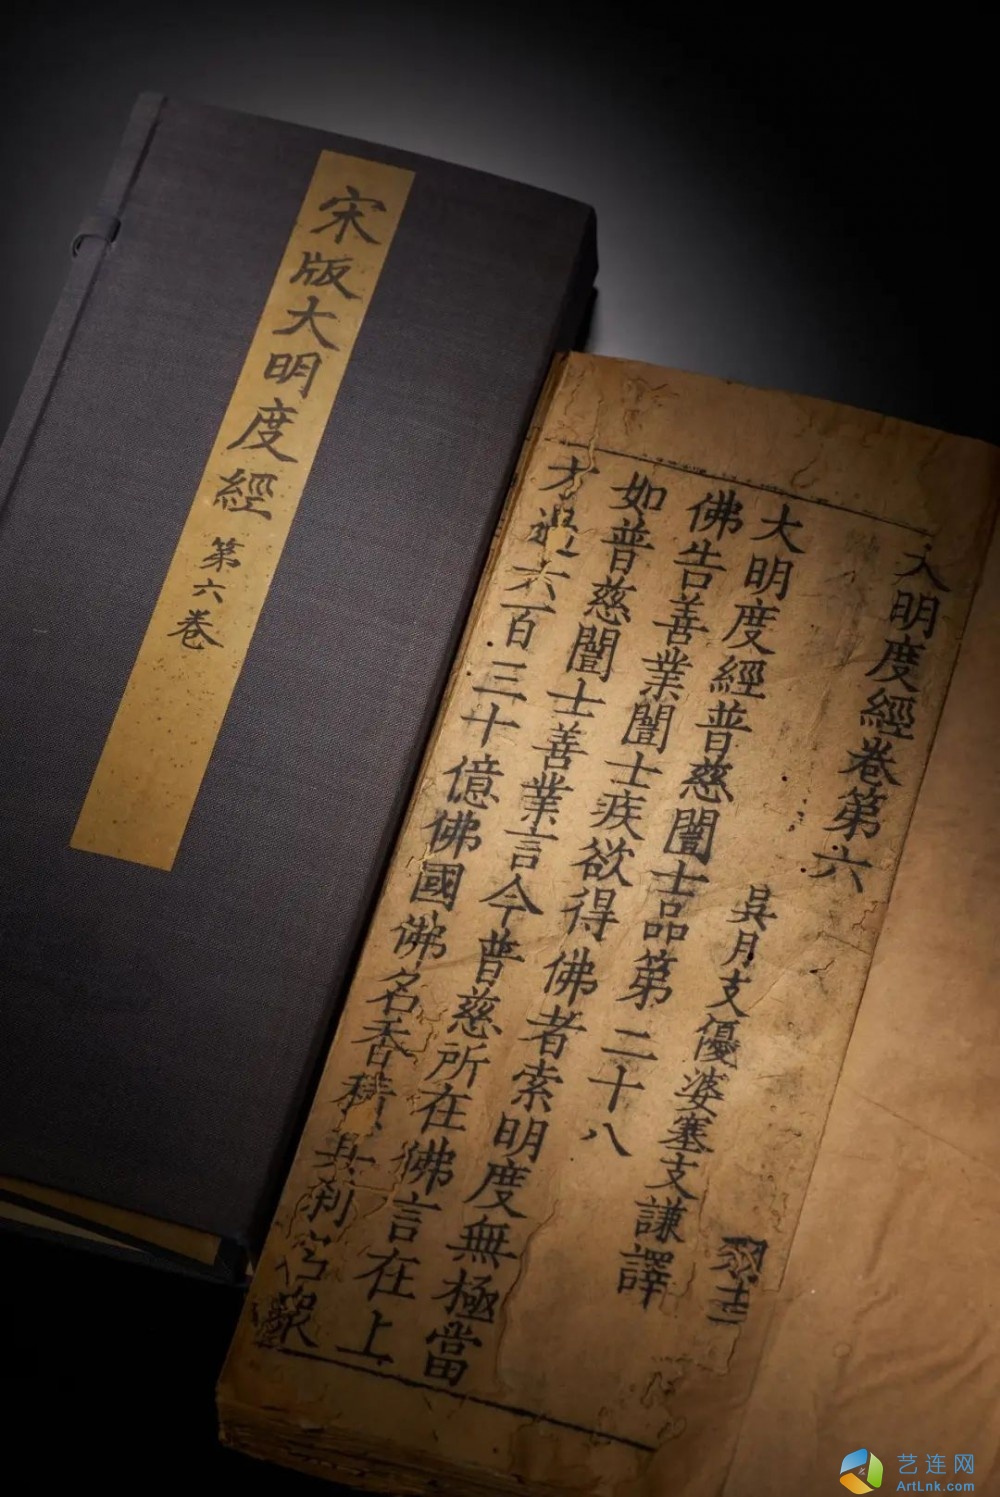 宋版大明度經 第六卷
大明度經卷第六
吳月支優婆塞支謙譯
大明度經普慈闓士品第二十八
佛告善業闓士疾欲得佛者索明度無極當
如普慈闓士善業言今普慈所在佛言在上
方過六百三十億佛國佛名香積其刹名眾
艺连网
ArtLnk.com